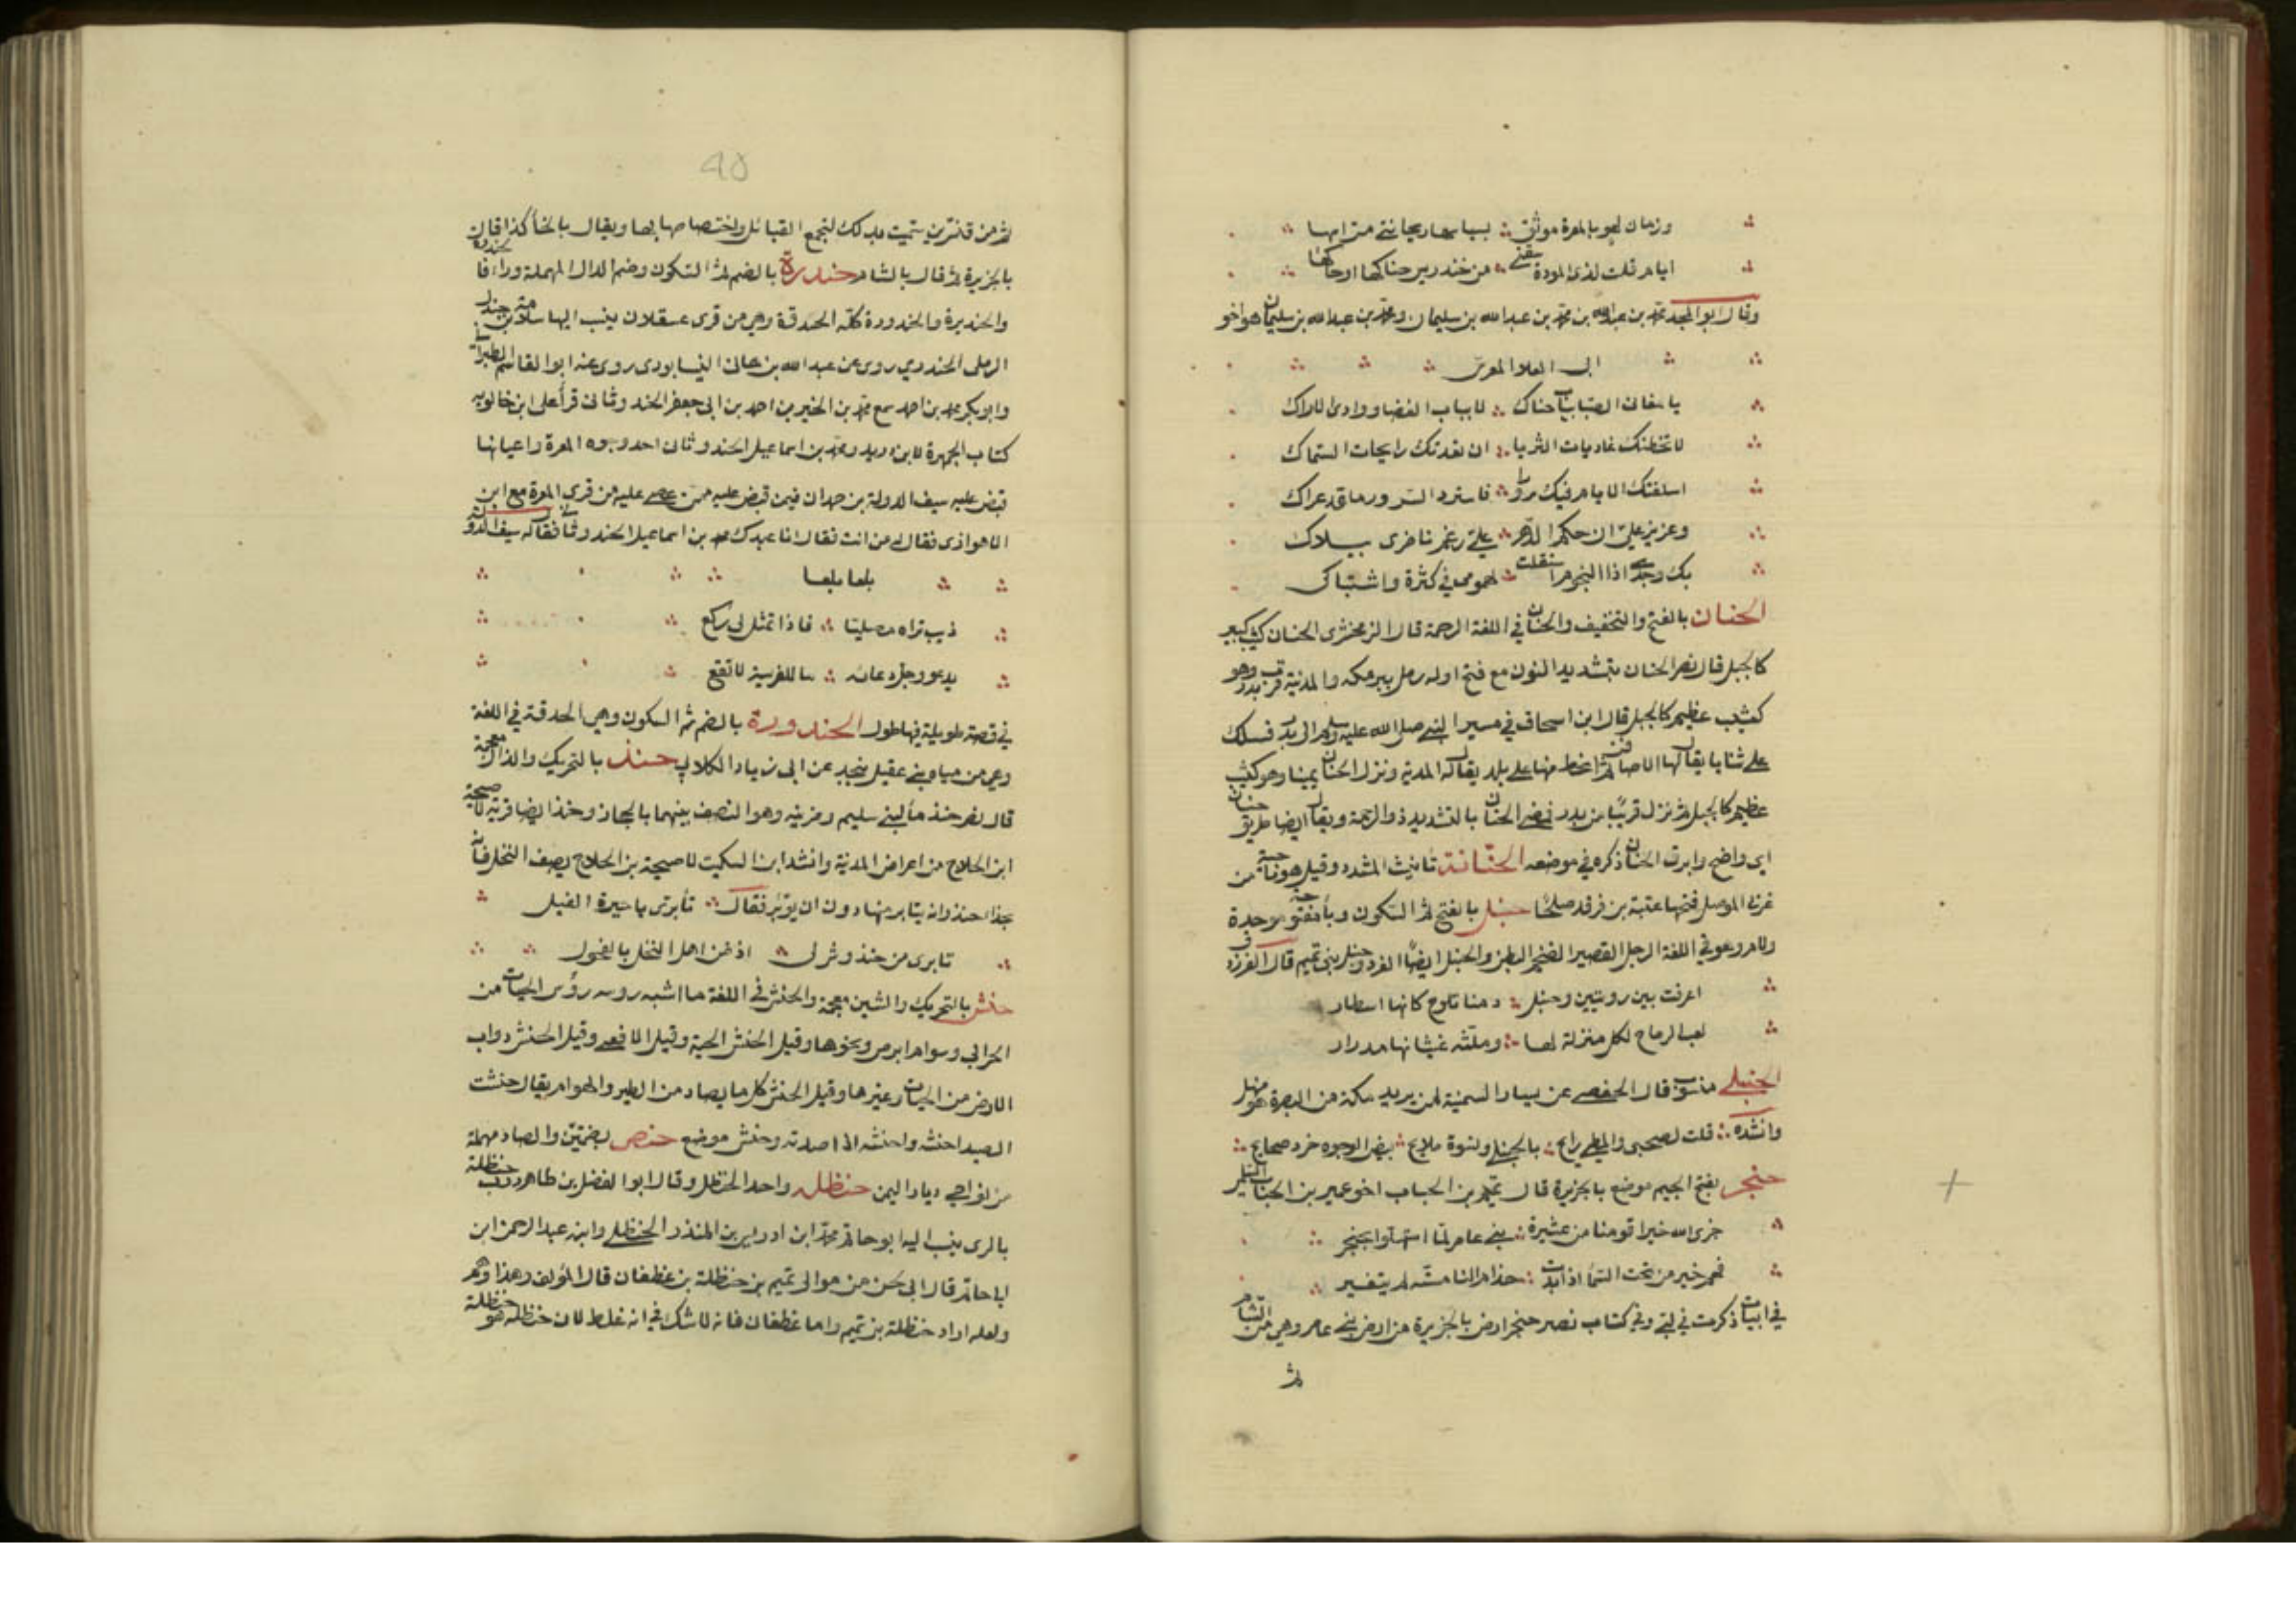 وزمان لهو بالمعرة مونق بسياثها وبجانبي هرماسها
ايام قلت لذي المودة سقني من خندريس حناكها او حاسها
وقال ابو المجد محمد بن عبدالله بن محمد بن عبدالله بن سليمان ومحمد بن عبدالله بن سليمان هو اخو
ابي العلا المعري
يا مغاني الصبا بباب حناك لا بباب الغضا ووادي الاراك
لا تخطتك غاديات الثريا ان تعدتك رايحات السماك
اسلفتك الايام فيك سرورا فاسترد السرور ما قد عراك
وعزيز علي ان حكم الدهر علي رغم ناظري ببلاك
بك وجدي اذا النجوم استقلت لهمومي في كثرة واشتباك
الحنان بالفتح والتخفيف والحنان في اللغة الرحمة قال الزمخشري الحنان كثيب كبير
كالجبل قال نصر الحنان بتشديد النون مع فتح اوله رمل بين مكه والمدينة قرب بدر وهو
كثيب عظيم كالجبل قال ابن اسحاق في مسير النبي صلى الله عليه وسلم الى بدر فسلك
على ثنايا يقال لها الاصافر ثم انحط منها على بلد يقال له الدبة وترك الحنان يمينا وهو كثيب
عظيم كالجبل ثم نزل قريبا من بدر فمعنى الحنان بالتشديد ذو الرحمة ويقال ايضا طريق حنان
اي واضح وابرق الحنان ذكر في موضعه الحنانة تأنيث المشدد وقيل هو ناحية من
غربي الموصل فتحها عتبة بن فرقد صلحا حنبل بالفتح ثم السكون وبا مفتوحة موحدة
ولام وهو في اللغة الرجل القصير الضخم البطن والحنبل ايضا الفرو حنبل بني تميم قال الفرزدق
اعرفت بين رويتين وحنبل دمنا تلوح كانها اسطار
لعب الرياح لكل منزلة لها وملثه غبثانها مدرار
الحنبلي منسوب قال الحفصي عن يسار السمينة لمن يريد مكة من البصرة هو منهل
وانشد قلت لصحبي والمطي رايح بالحنبلي ونسوة ملايح بيض الوجوه خرد صحايح
حنجر بفتح الجيم موضع بالجزيرة قال تميم بن الحباب اخو عمير بن الحباب السلمي
جزى الله خيرا قومنا من عشيرة بني عامر لما استهلوا بحنجر
هم خير من تحت السما اذا بدت خدام النسا مسته لم يتغير
في ابيات ذكرت في لبي وفي كتاب نصر حنجر ارض بالجزيرة من ارض بني عامر وهي من الشام
ثم
ثم من قنسرين سميت بذلك لتجمع القبائل واختصاصها بها ويقال بالخا كذا قال
بالجزيرة ثم قال بالشام حندرة بالضم ثم السكون وضم الدال المهملة وراء
والحنديرة والحندورة كله الحدقة وهي من قرى عسقلان ينسب اليها سلامة بن
الرملي الحندري روى عن عبدالله بن هانئ النيسابوري روى عنه ابو القاسم الطبراني
وابو بكر محمد بن احمد سمع محمد بن احمد بن ابي جعفر الحندوثاني قرأ على ابن خالويه
كتاب الجمهرة لابن دريد ومحمد بن اسماعيل الحندوثاني احد وجوه المعرة واعيانها
قبض عليه سيف الدولة بن حمدان فيمن قبض عليه ممن عصي عليه من قرى المعرة مع ابن
الاهوازي فقال له من انت فقال انا عبدك محمد بن اسماعيل الحندوثاني فقال له سيف الدولة
بلعا بلعا
ذيب تراه مصليا فاذا تمثل لي ركع
يدعو وجل دعائه ما للفريسة لا تقع
في قصة طويلة فيها طول الحندورة بالضم ثم السكون وهي الحدقة في اللغة
وهي من مياه بني عقيل بنجد عن ابي زياد الكلابي حنذ بالتحريك والذال معجمة
قال نصر حنذ ماء لبني سليم ومزينه وهو النصف بينهما بالحجاز وحنذ ايضا قرية لاحيحة
ابن الجلاح من اعراض المدينة وانشد ابن السكيت لاحيحة بن الجلاح يصف النخل فانه
بحذا حنذ وانه يتابر منها دون ان يوبر فقال تأبري يا خيرة الفسيل
تابري من حنذ وشولي اذ ضن اهل النخل بالفحول
حنش بالتحريك والشين معجمة والحنش في اللغة ما اشبه روسه رؤس الحيات من
الحرابي وسوام ابرص ونحوها وقيل الحنش الحية وقيل الافعى وقيل الحنش دواب
الارض من الحيات وغيرها وقيل الحنش كل ما يصاد من الطير والهوام يقال حنشت
الصيد احنشه واحنشه اذا صدته وحنش موضع حنص بضمتين والصاد مهملة
من نواحي ديار اليمن حنظلة واحد الحنظل وقال ابو الفضل بن طاهر درب حنظلة
بالري ينسب اليه ابو حاتم محمد ابن ادريس بن المنذر الحنظلي وابنه عبد الرحمن ابن
ابا حاتم قال ابي نحن من موالي تميم بن حنظلة بن غطفان قال المؤلف وهذا وهم
ولعله اراد حنظلة بن تميم واما غطفان فانه لا شك في انه غلط لان حنظله هو حنظلة